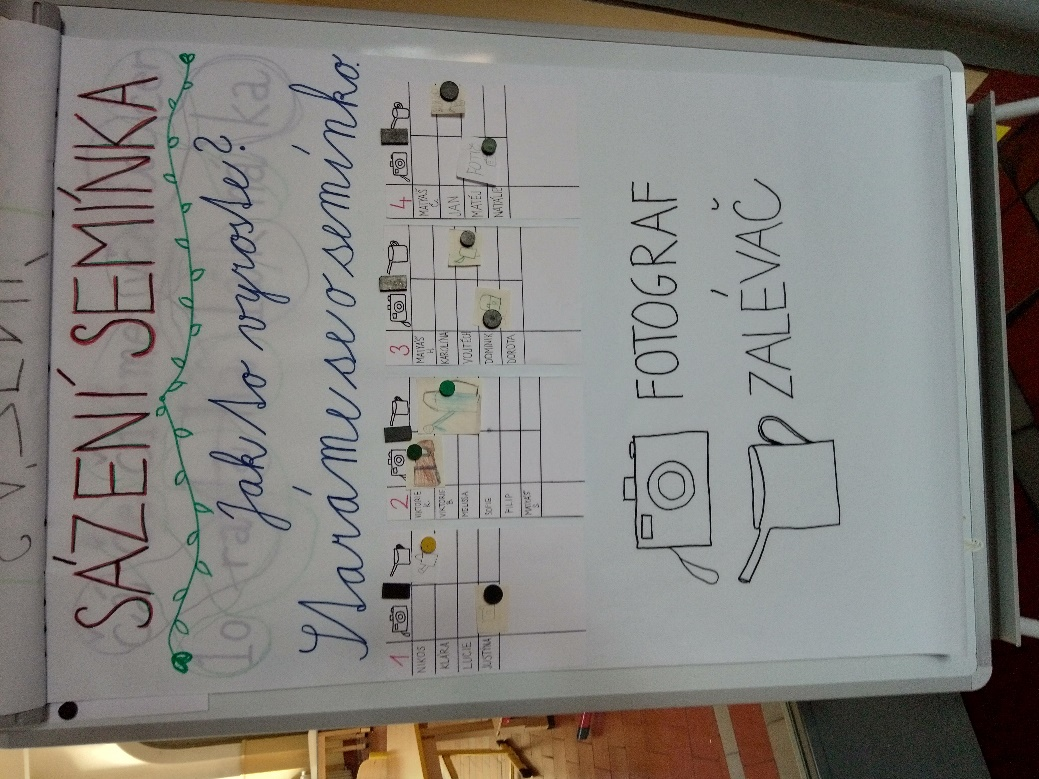 SÁZENÍ SEMÍNKA
Jak to vyroste?
Staráme se o semínko.
1
NIKOLS
KLÁRA
LUCIE
JUSTÝNA
2
VIKTORIE K.
VIKTORIE B.
MELISSA
SOFIE
FILIP
MATYÁŠ S.
3
MATYÁŠ H.
KAROLÍNA
VOJTĚCH
DOMINIK
DOROTA
4
MATYÁŠ Č.
JAN
MATĚJ
NATÁLIE
FOTOGRAF
ZALÉVAČ